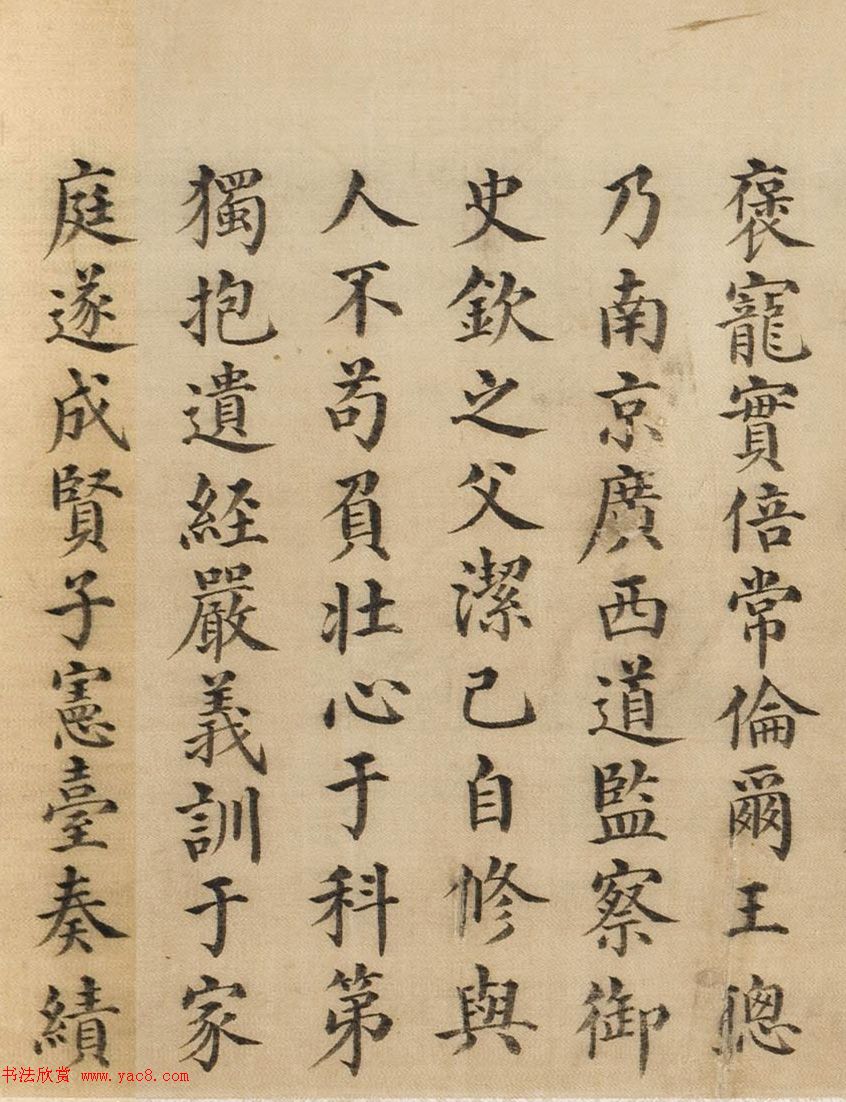 褒寵實倍常倫爾王聰
乃南京廣西道監察御
史欽之父潔己自修與
人不苟負壯心于科第
獨抱遺經嚴義訓于家
庭遂成賢子憲臺奏績
书法欣赏 www.yac8.com